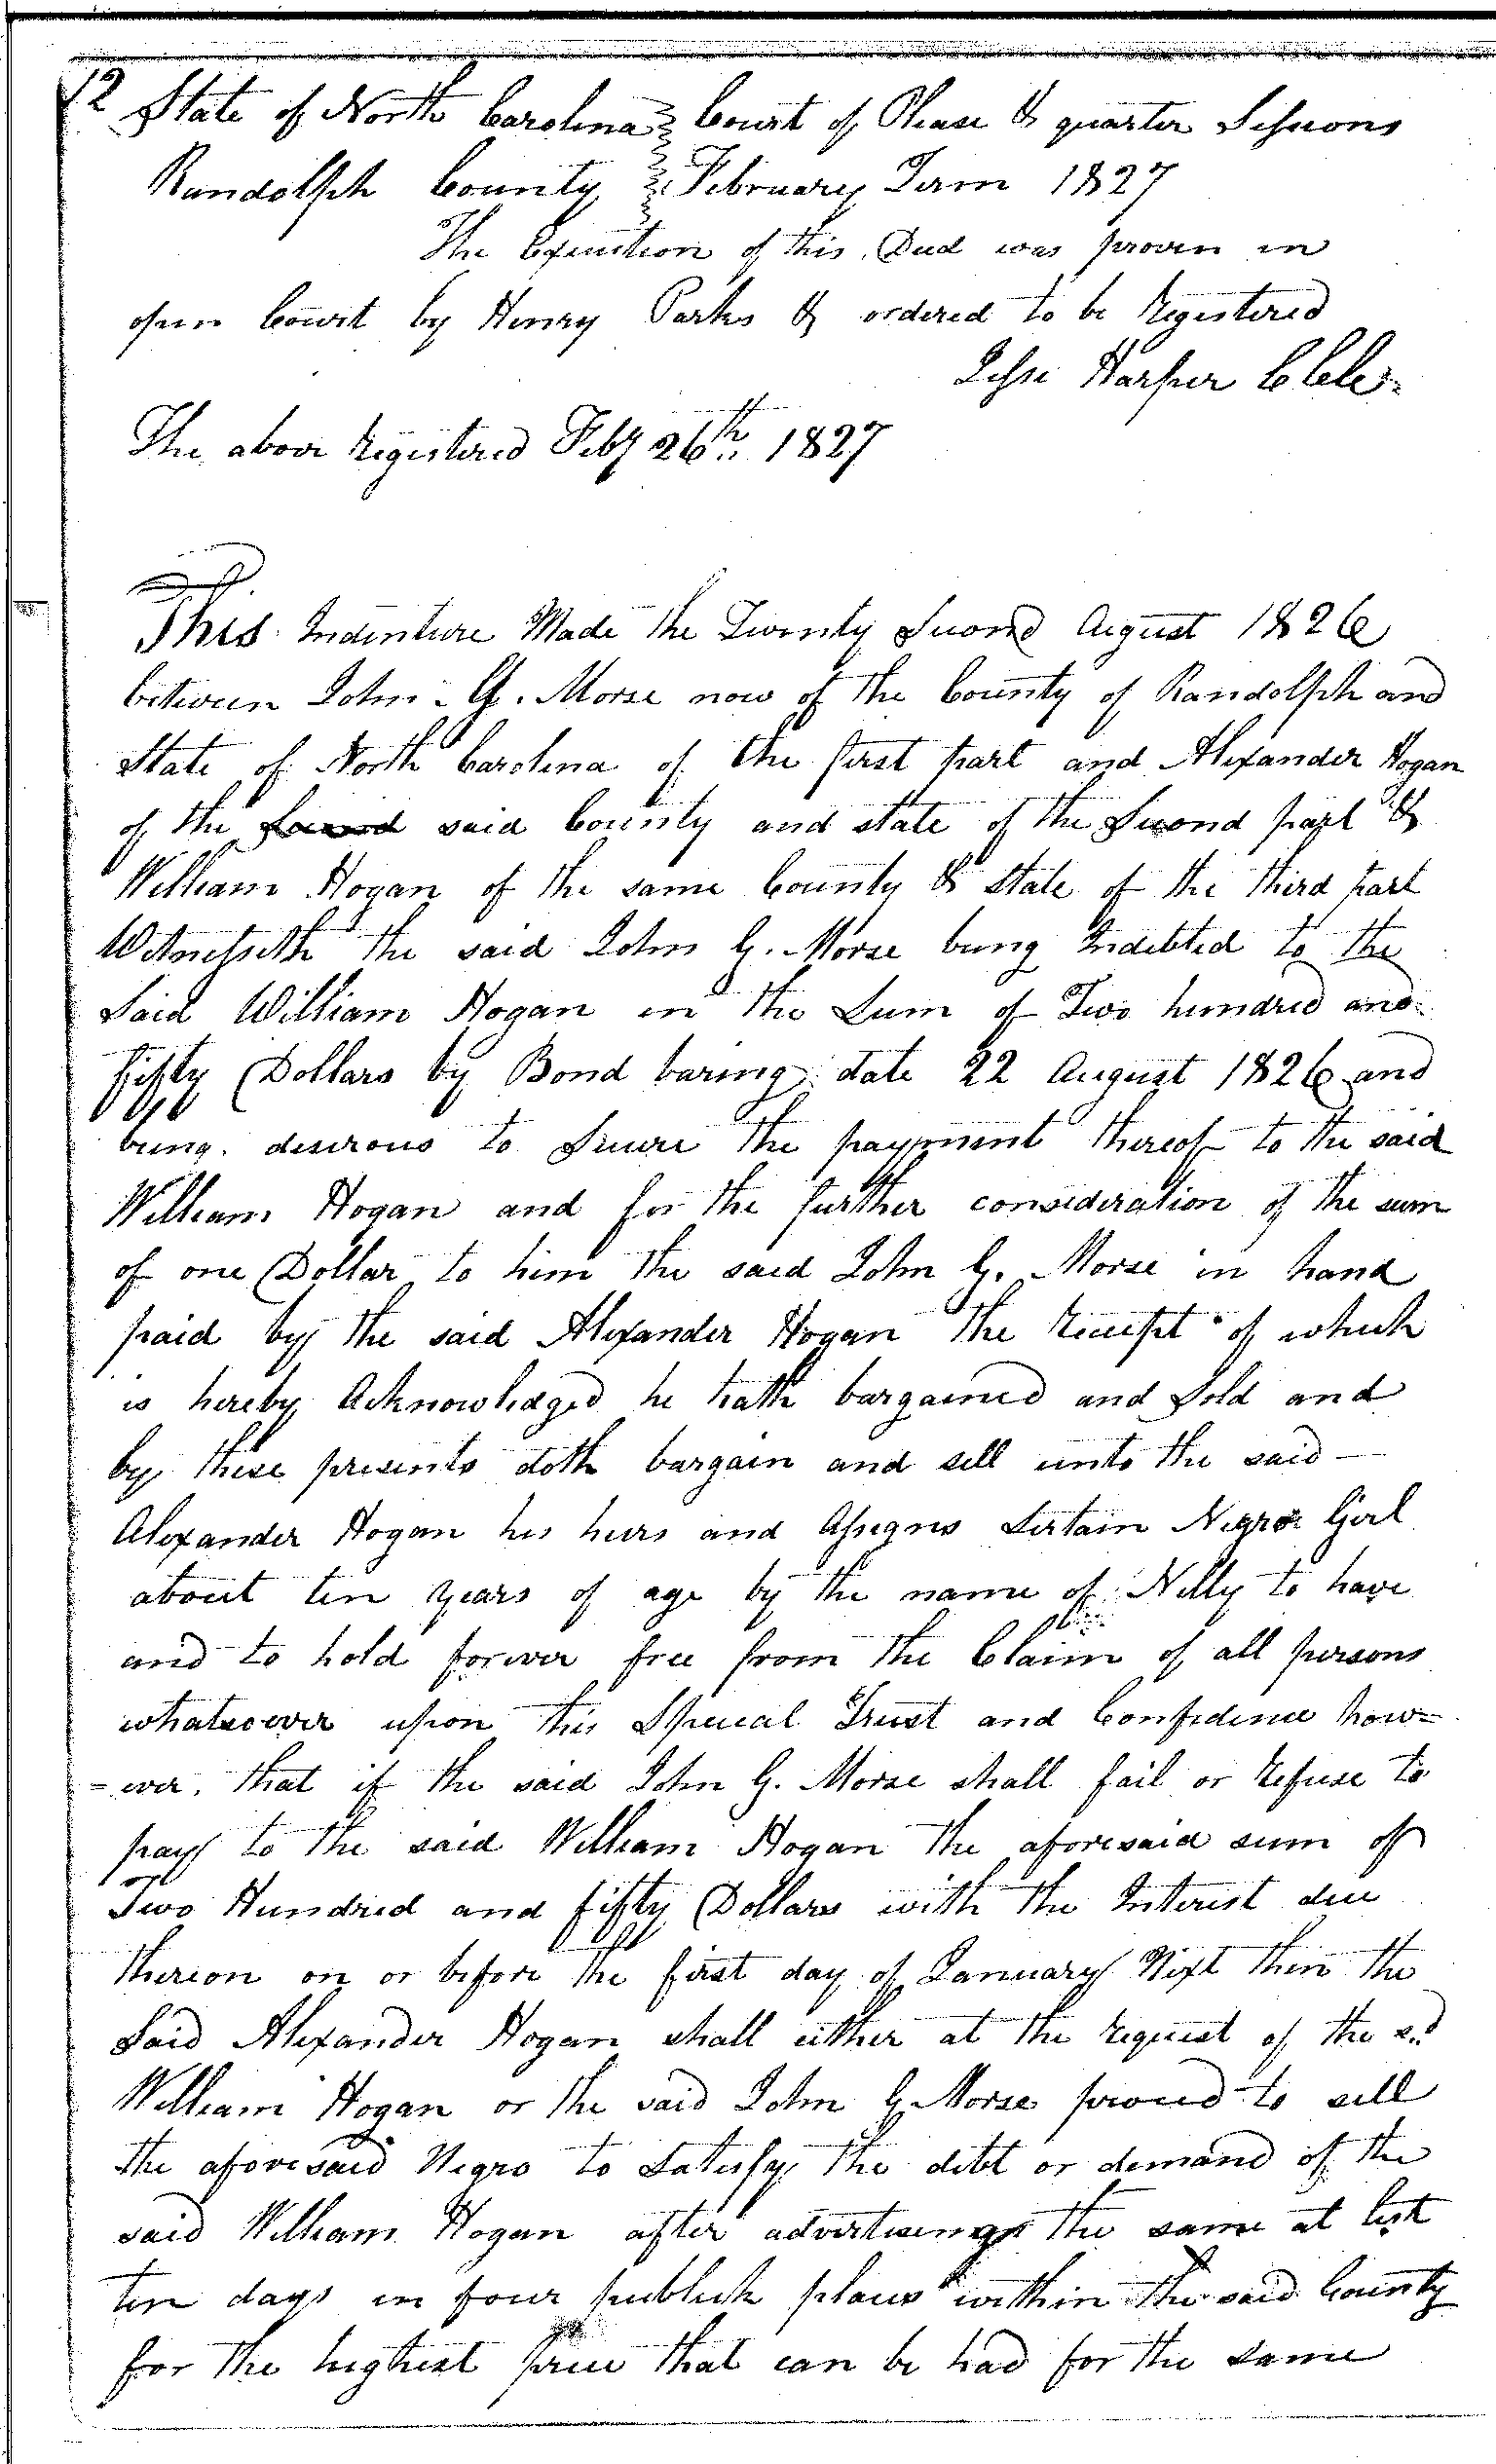 12 State of North Carolina } Court of Pleas & quarter Sessions
Randolph County } February Term 1827
The Execution of this Deed was proven in
open Court by Henry Parks & ordered to be Registered
Jesse Harper C Clk
The above Registered Feby 26th 1827
This Indenture Made the Twenty Second August 1826
between John G. Morse now of the County of Randolph and
State of North Carolina of the first part and Alexander Hogan
of the said County and state of the Second part &
William Hogan of the same County & State of the third part
Witnesseth the said John G. Morse being Indebted to the
Said William Hogan in the Sum of Two hundred and
fifty Dollars by Bond baring date 22 August 1826 and
being desirous to Secure the payment thereof to the said
William Hogan and for the further consideration of the sum
of one Dollar to him the said John G. Morse in hand
paid by the said Alexander Hogan the Receipt of which
is hereby Acknowledged he hath bargained and Sold and
by these presents doth bargain and sell unto the said —
Alexander Hogan his heirs and Assigns Certain Negro Girl
about ten years of age by the name of Nelly to have
and to hold forever free from the Claim of all persons
whatsoever upon this Special Trust and Confidence how=
=ever. that if the said John G. Morse shall fail or Refuse to
pay to the said William Hogan the aforesaid sum of
Two Hundred and fifty Dollars with the Interest due
thereon on or before the first day of January Next then the
Said Alexander Hogan shall either at the request of the sd
William Hogan or the said John G Morse proceed to sell
the aforesaid Negro to Satisfy the debt or demand of the
said William Hogan after advertiseing the same at lest
ten days in four publick places within the said County
for the highest price that can be had for the same